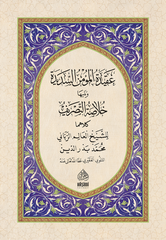 عقيدة المؤمن السديدة
وبليها
خلاصة التصريف
كلاهما
للشيخ العالم الرباني
محمد بدر الدين